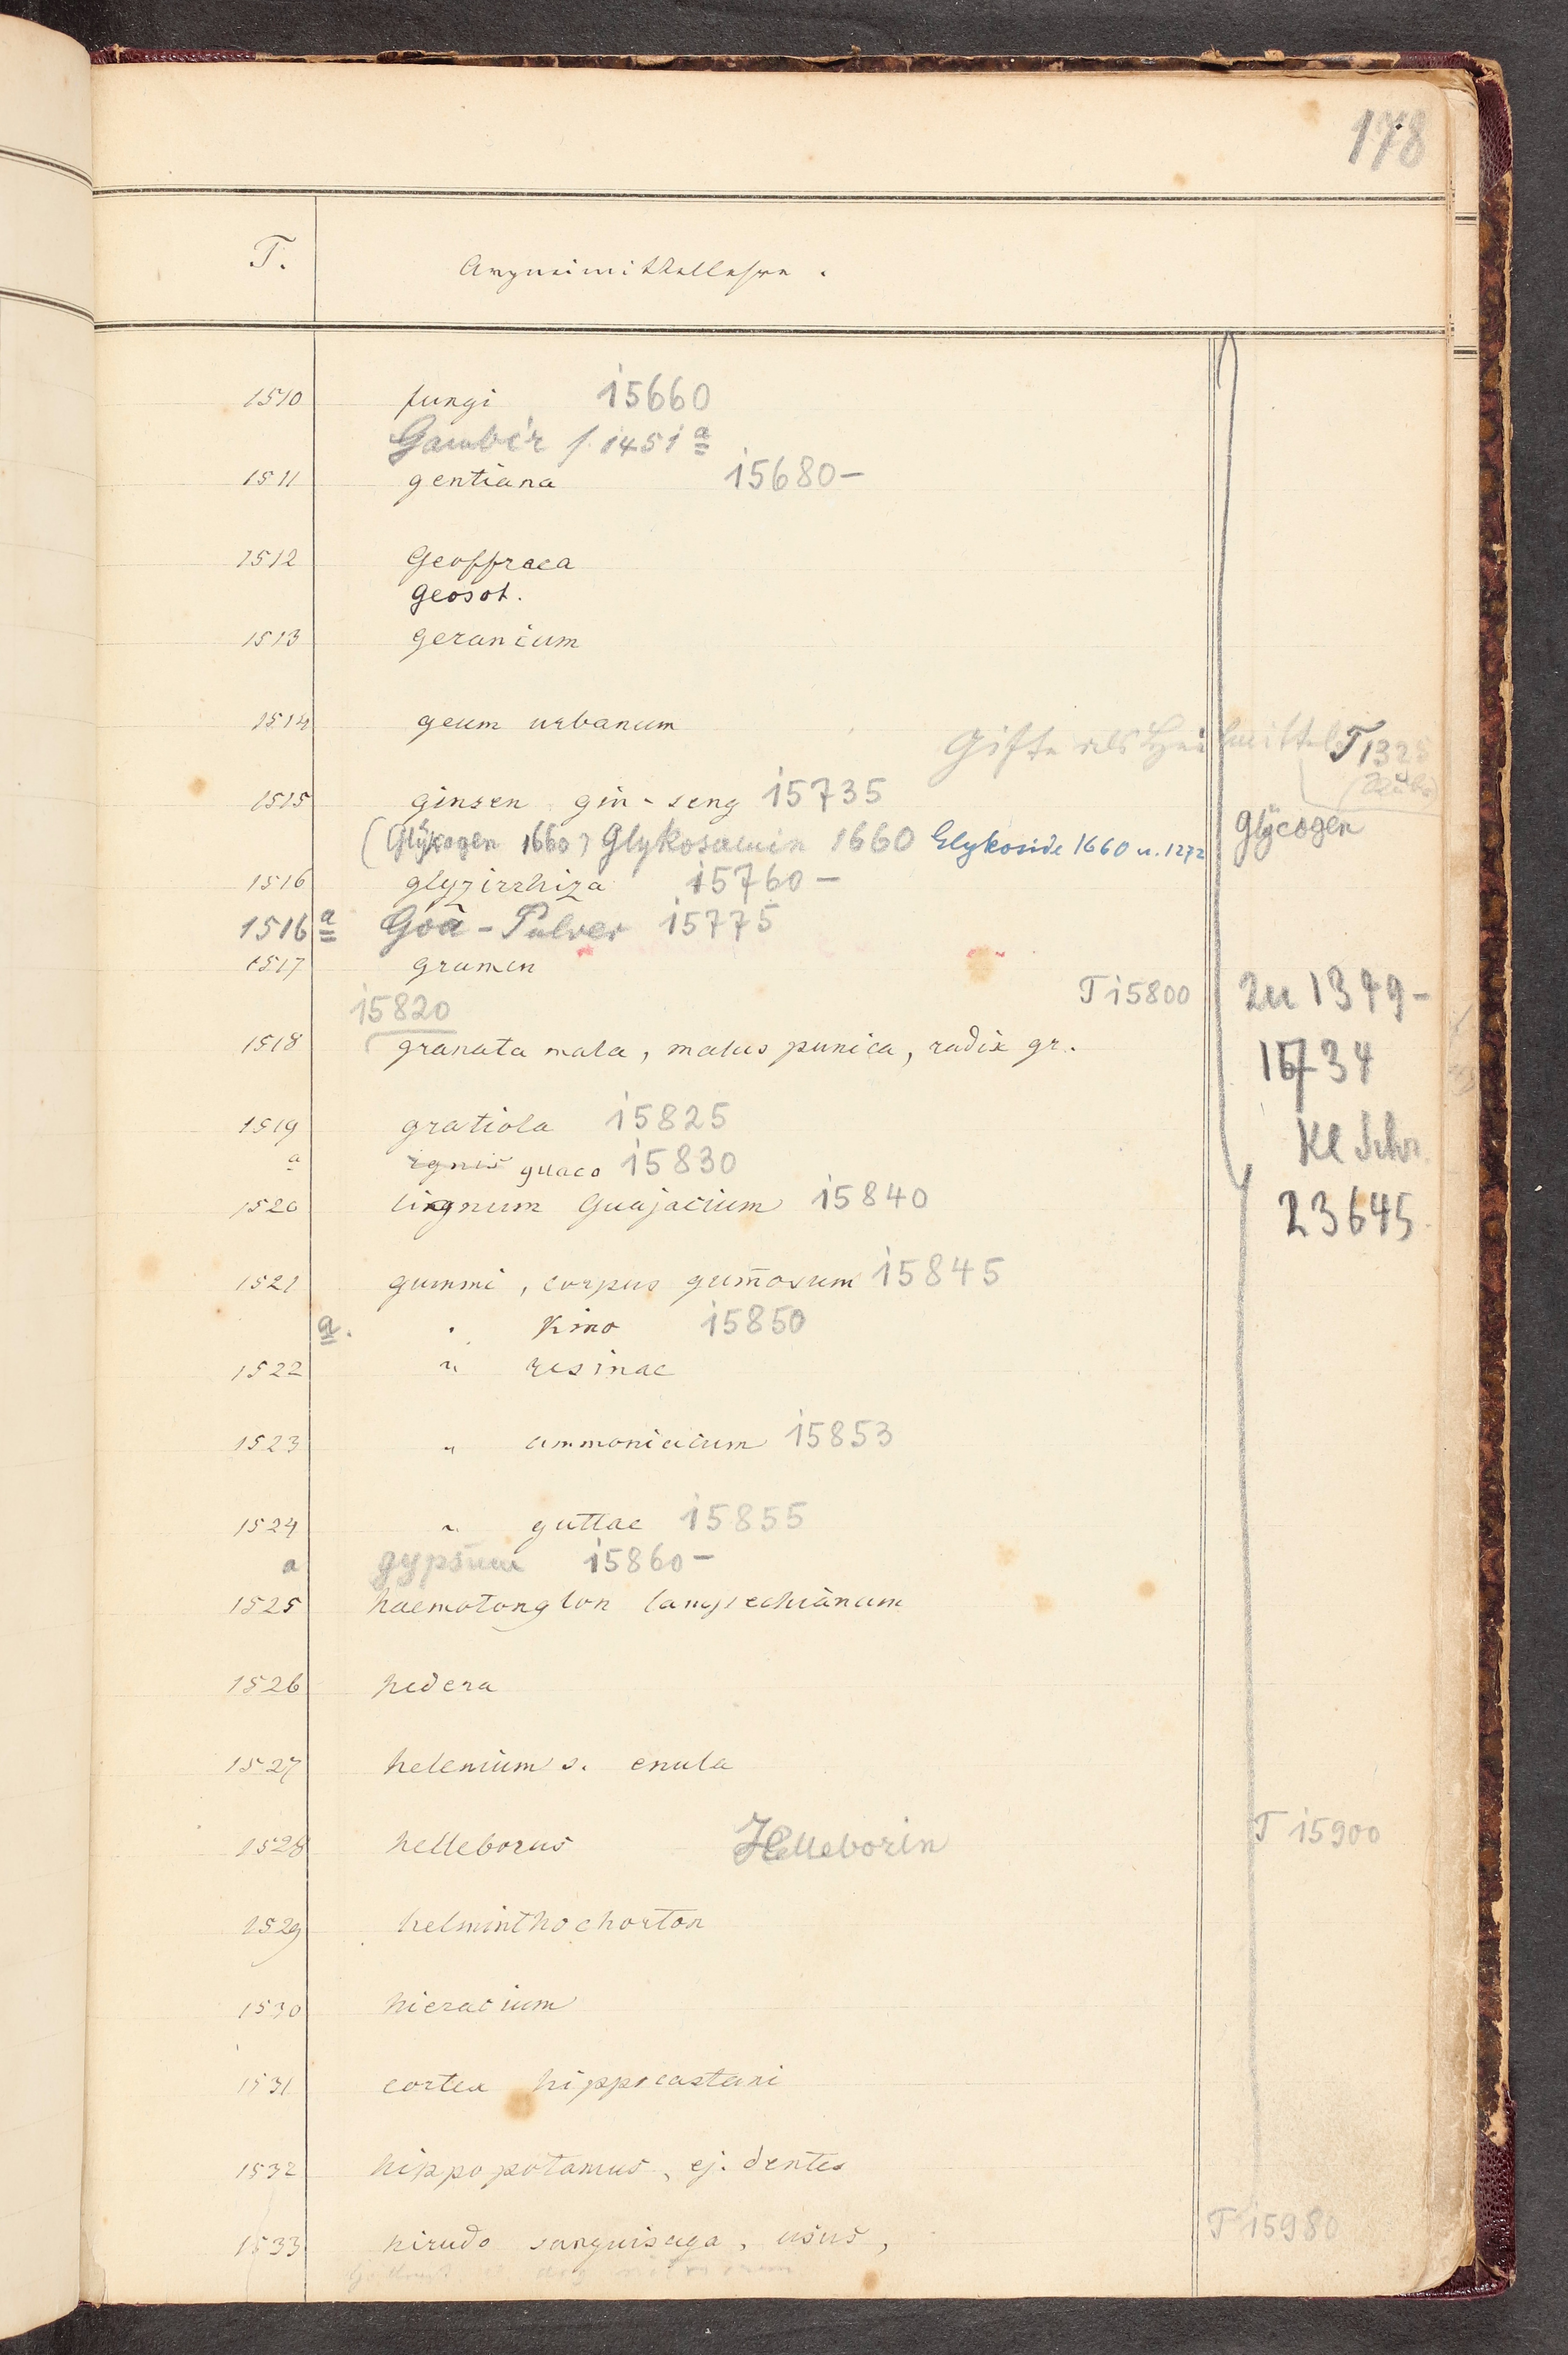 178
T. Arzneimittellehre.
1510 fungi 15660
Gambir s. 1451 a
1511 gentiana 15680-
1512 Geoffraea
Geosot.
1513 geranium
1514 geum urbanum
Gifte als Heilmittel T 1325
1515 ginsen gin-seng 15735
(Glykogen 1660) Glykosamin 1660 Glykoside 1660 u. 1272 Glycogen
1516 glyzirrhiza 15760-
1516 a Goa-Pulver 15775
1517 gramen
15820 T 15800 zu 1349-
1518 granata mala, malus punica, radix gr. 15734
1519 gratiola 15825
Kl Schr.
a ignis guaco 15830
1520 lignum Guajacium 15840 23645
1521 gummi, corpus gum̄osum 15845
a. " Kino 15850
1522 " resinae
1523 " ammoniacum 15853
1524 " guttae 15855
a gypsum 15860-
1525 haemotonglon
1526 hedera
1527 helenium s. enula
1528 helleborus Helleborin T 15900
1529 helminthochorton
1530 hieracium
1531 cortex hippocastani
1532 hippopotamus, ej. dentes
1533 hirudo sanguisuga, usus, T 15980